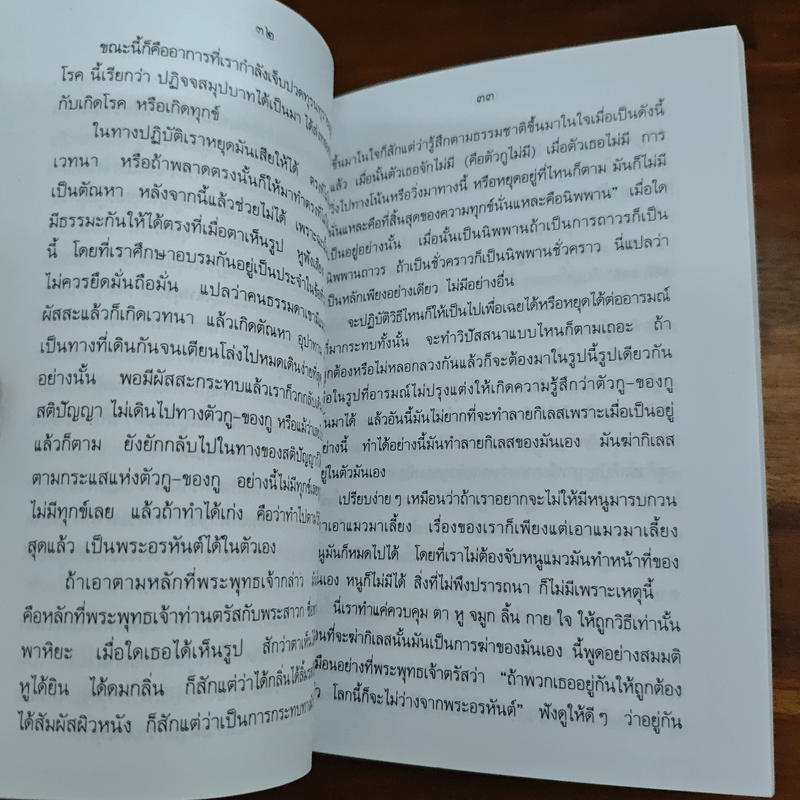 ๓๒
ขณะนี้ก็คืออาการที่เรากำลังเจ็บปวดทุรนทุราย
โรค นี้เรียกว่า ปฏิจจสมุปบาทได้เป็นมา
กับเกิดโรค หรือเกิดทุกข์
ในทางปฏิบัติเราหยุดมันเสียให้ได้ ตรงที่
เวทนา หรือถ้าพลาดตรงนั้นก็ให้มาทำตรงที่
เป็นตัณหา หลังจากนี้แล้วช่วยไม่ได้ เพราะฉะนั้น
มีธรรมะกันให้ได้ตรงที่เมื่อตาเห็นรูป หูฟังเสียง
นี้ โดยที่เราศึกษาอบรมกันอยู่เป็นประจำใน
ไม่ควรยึดมั่นถือมั่น แปลว่าคนธรรมดาเรามี
ผัสสะแล้วก็เกิดเวทนา แล้วเกิดตัณหา อุปาทาน
เป็นทางที่เดินกันจนเตียนโล่งไปหมดเดินง่ายที่สุด
อย่างนั้น พอมีผัสสะกระทบแล้วเราก็วกกลับ
สติปัญญา ไม่เดินไปทางตัวกู-ของกู หรือแม้ว่า
แล้วก็ตาม ยังยักกลับไปในทางของสติปัญญา
ตามกระแสแห่งตัวกู-ของกู อย่างนี้ไม่มีทุกข์เลย
ไม่มีทุกข์เลย แล้วถ้าทำได้เก่ง คือว่าทำไป
สุดแล้ว เป็นพระอรหันต์ได้ในตัวเอง
ถ้าเอาตามหลักที่พระพุทธเจ้ากล่าว
คือหลักที่พระพุทธเจ้าท่านตรัสกับพระสาวก
พาหิยะ เมื่อใดเธอได้เห็นรูป สักว่าตาเห็น
หูได้ยิน ได้ดมกลิ่น ก็สักแต่ว่าได้กลิ่น
ได้สัมผัสผิวหนัง ก็สักแต่ว่าเป็นการกระทบทาง
๓๓
ขึ้นมาในใจก็สักแต่ว่ารู้สึกตามธรรมชาติขึ้นมาในใจเมื่อเป็นดังนี้
แล้ว เมื่อนั้นตัวเธอจักไม่มี (คือตัวกูไม่มี) เมื่อตัวเธอไม่มี การ
วิ่งไปทางโน้นหรือวิ่งมาทางนี้ หรือหยุดอยู่ที่ไหนก็ตาม มันก็ไม่มี
นั่นแหละคือที่สิ้นสุดของความทุกข์นั่นแหละคือนิพพาน” เมื่อใด
เป็นอยู่อย่างนั้น เมื่อนั้นเป็นนิพพานถ้าเป็นการถาวรก็เป็น
นิพพานถาวร ถ้าเป็นชั่วคราวก็เป็นนิพพานชั่วคราว นี่แปลว่า
เป็นหลักเพียงอย่างเดียว ไม่มีอย่างอื่น
จะปฏิบัติวิธีไหนก็ให้เป็นไปเพื่อเฉยได้หรือหยุดได้ต่ออารมณ์
ที่มากระทบทั้งนั้น จะทำวิปัสสนาแบบไหนก็ตามเถอะ ถ้า
ถูกต้องหรือไม่หลอกลวงกันแล้วก็จะต้องมาในรูปนี้รูปเดียวกัน
คือในรูปที่อารมณ์ไม่ปรุงแต่งให้เกิดความรู้สึกว่าตัวกู-ของกู
ขึ้นมาได้ แล้วอันนี้มันไม่ยากที่จะทำลายกิเลสเพราะเมื่อเป็นอยู่
อย่างนี้ ทำได้อย่างนี้มันทำลายกิเลสของมันเอง มันฆ่ากิเลส
อยู่ในตัวมันเอง
เปรียบง่าย ๆ เหมือนว่าถ้าเราอยากจะไม่ให้มีหนูมารบกวน
เราเอาแมวมาเลี้ยง เรื่องของเราก็เพียงแต่เอาแมวมาเลี้ยง
หนูมันก็หมดไปได้ โดยที่เราไม่ต้องจับหนูแมวมันทำหน้าที่ของ
มันเอง หนูก็ไม่มีได้ สิ่งที่ไม่พึงปรารถนา ก็ไม่มีเพราะเหตุนี้
นี่เราทำแค่ควบคุม ตา หู จมูก ลิ้น กาย ใจ ให้ถูกวิธีเท่านั้น
ส่วนที่จะฆ่ากิเลสนั้นมันเป็นการฆ่าของมันเอง นี้พูดอย่างสมมติ
เหมือนอย่างที่พระพุทธเจ้าตรัสว่า “ถ้าพวกเธออยู่กันให้ถูกต้อง
โลกนี้ก็จะไม่ว่างจากพระอรหันต์” ฟังดูให้ดี ๆ ว่าอยู่กัน